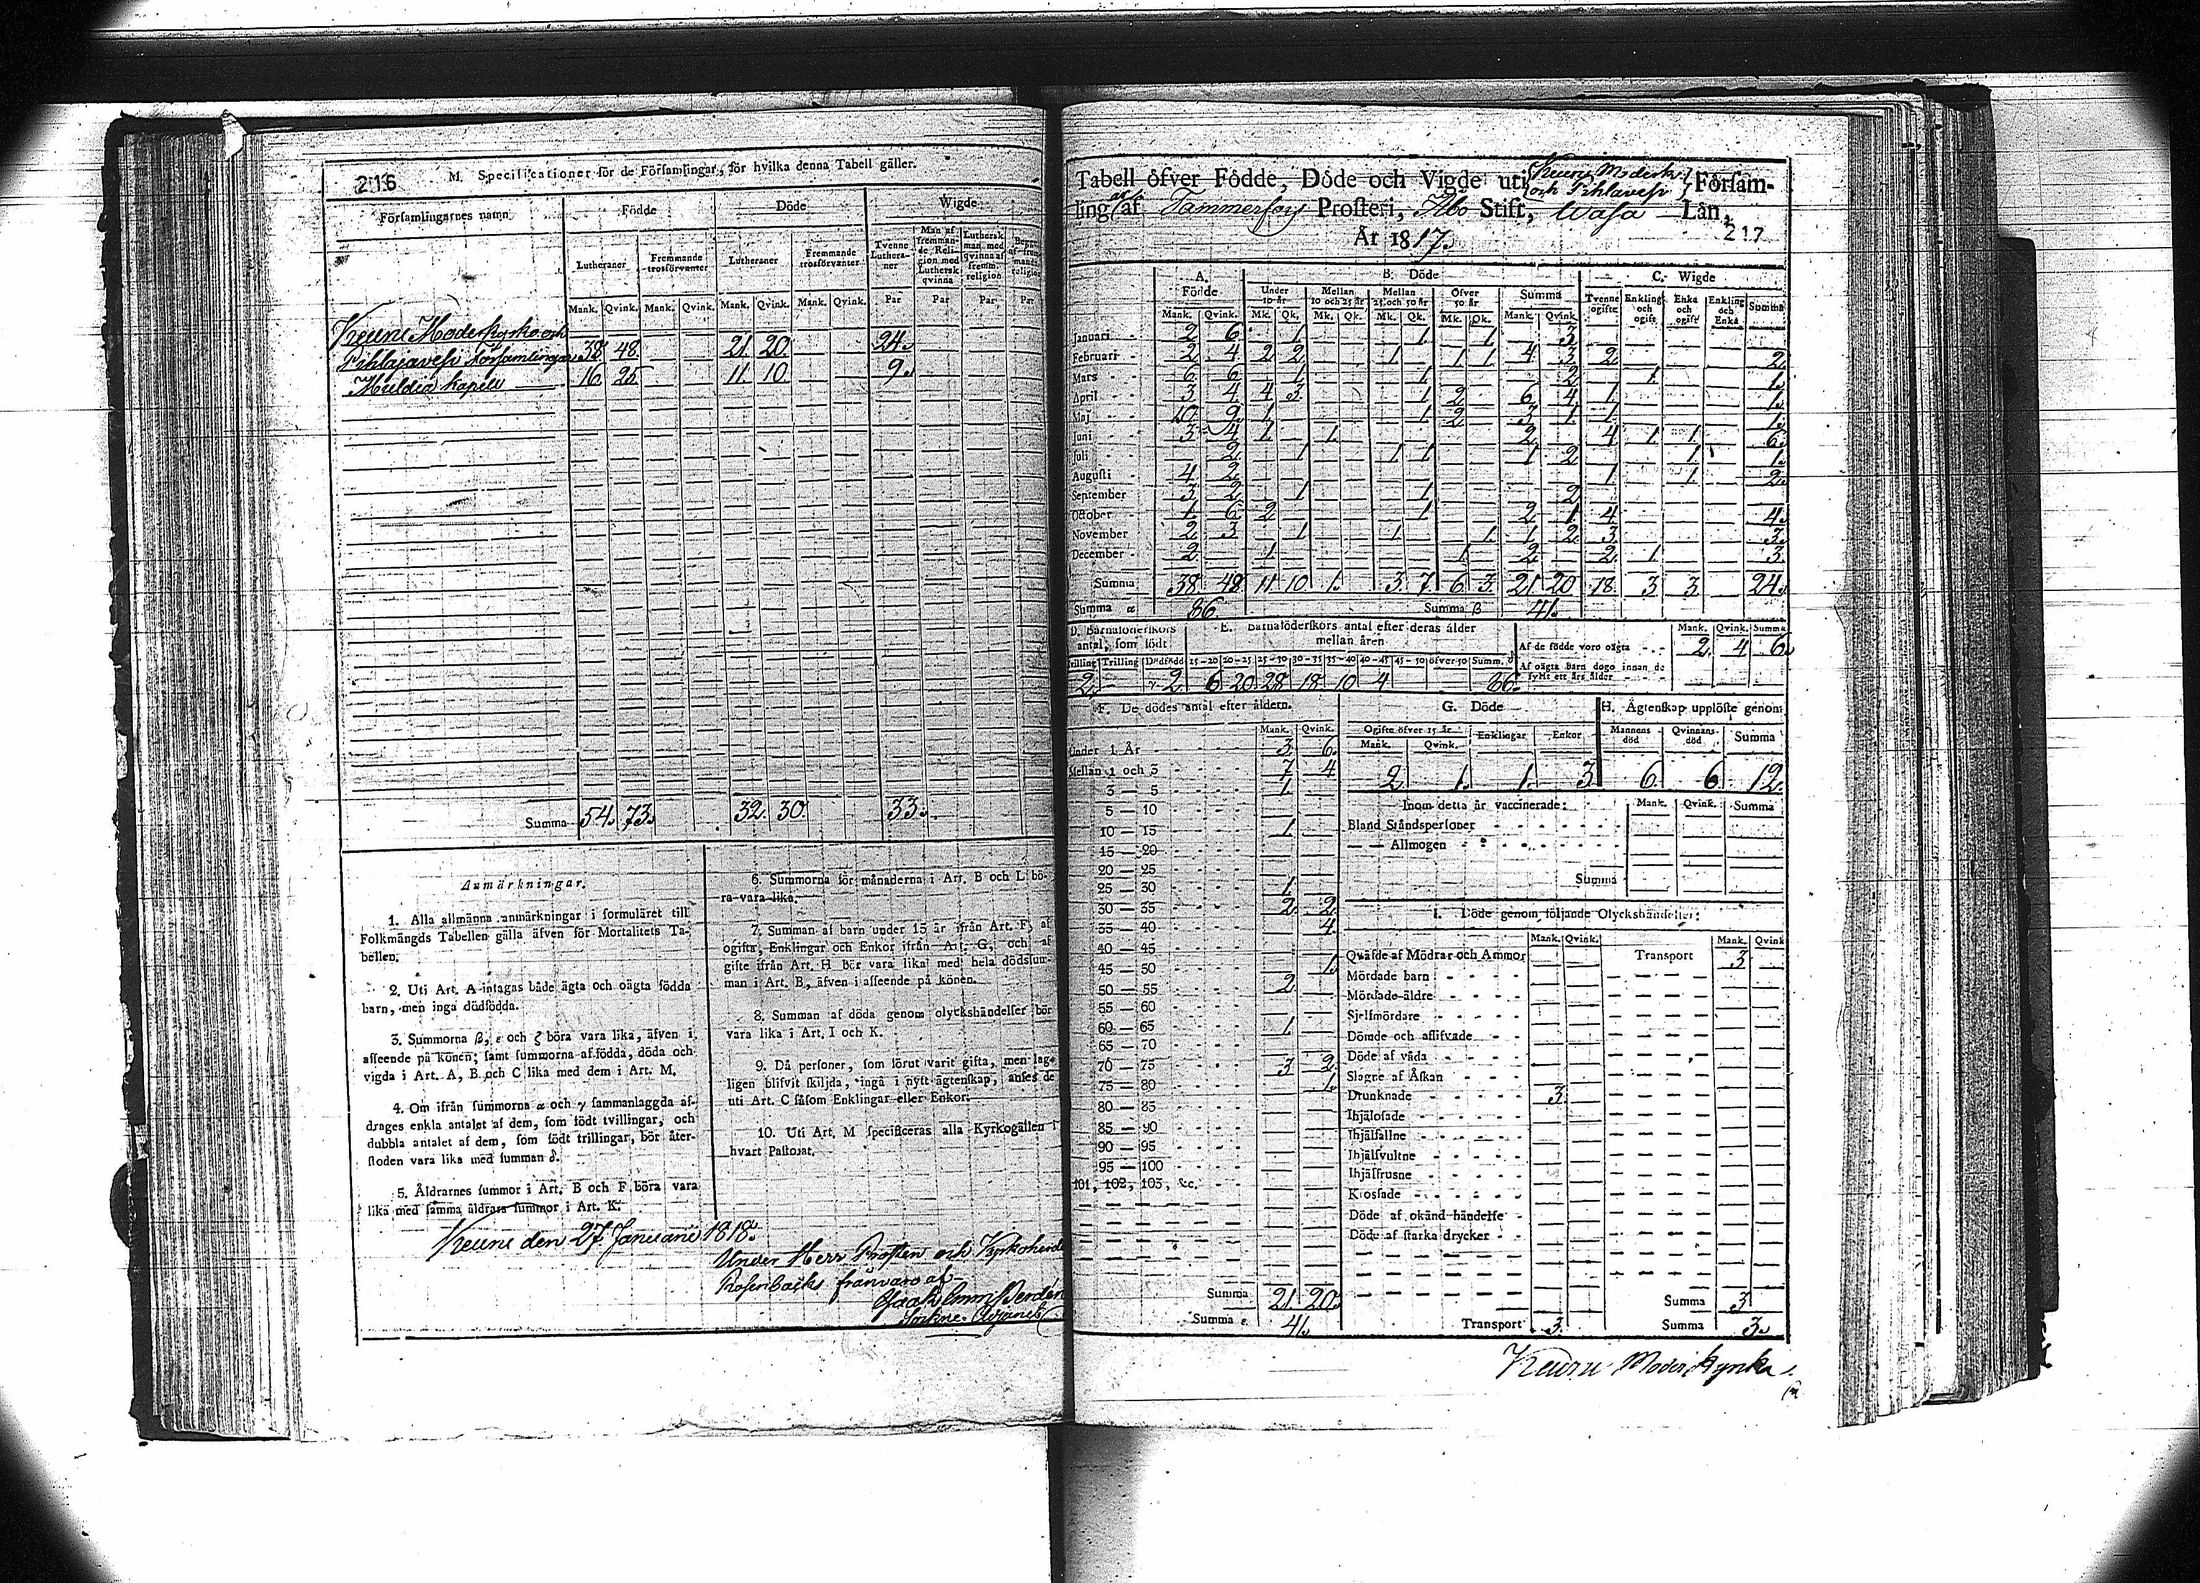 216 M. Specificationer för de Församlingar, för hvilka denna Tabell gäller.
Församlingarnes namn Födde Döde Wigde
Lutheraner Fremmande trosförvanter Lutheraner Fremmande trosförvanter Tvenne Lutheraner Man af fremmande Religion med Luthersk qvinna Luthersk man med qvinna af fremm. religion
Mank. Qvink. Mank. Qvink. Mank. Qvink. Mank. Qvink. Par Par Par Par
Keuru Moderkyrko och
Pihlajavesi Församlingar 38 48. 21 20. 24.
Multia kapell 16 25 11. 10. 9.
Summa 54. 73. 32. 30. 33.
Anmärkningar.
1. Alla allmänna anmärkningar i formuläret till
Folkmängds Tabellen gälla äfven för Mortalitets Ta-
bellen.
2. Uti Art. A intagas både ägta och oägta födda
barn, men inga dödfödda.
3. Summorna β, ε och ζ böra vara lika, äfven i
afseende på könen; samt summorna af födda, döda och
vigda i Art. A, B och C lika med dem i Art. M.
4. Om ifrån summorna α och γ sammanlaggda af-
drages enkla antalet af dem, som födt tvillingar, och
dubbla antalet af dem, som födt trillingar, bör åter-
stoden vara lika med summan δ.
5. Åldrarnes summor i Art. B och F böra vara
lika med samma åldrars summor i Art. K.
6. Summorna för månaderna i Art. B och L bö-
ra vara lika.
7. Summan af barn under 15 år ifrån Art. F, af
ogifta, Enklingar och Enkor ifrån Art. G, och af
gifte ifrån Art. H bör vara lika med hela dödssum-
man i Art. B, äfven i afseende på könen.
8. Summan af döda genom olyckshändelser bör
vara lika i Art. I och K.
9. Då personer, som förut varit gifta, men lag-
ligen blifvit skiljda, ingå i nytt ägtenskap, anses de
uti Art. C såsom Enklingar eller Enkor.
10. Uti Art. M specificeras alla Kyrkogällen i
hvart Pastorat.
Keuru den 27 Januarii 1818.
Under Herr Prosten och Kyrkoherde
Rosenbacks frånvaro af
Tabell öfver Födde, Döde och Vigde uti Keuru Moderk. och Pihlavesi Församling
ar af Tammerfors Prosteri, Åbo Stift, Wasa Län,
År 1817. 217
A. Födde B. Döde C. Wigde
Under 10 år Mellan 10 och 25 år Mellan 25 och 50 år Öfver 50 år Summa Tvenne ogifte Enkling och ogift Enka och ogift Enkling och Enka Summa
Mank. Qvink. Mk. Qk. Mk. Qk. Mk. Qk. Mk. Qk. Mank. Qvink.
Januari 2 6. 1 1 1 3
Februari 2 4 2 2 1 1 1 4 3 2 2.
Mars 6 6 1 1 2 1 1.
April 3 4 4 3 1 2 6 4 1 1.
Maj 10 9 1 1 2 3 1 1 1.
Juni 3 4 1. 1. 2 4 1 1 6.
Juli 2 1 1 1 1 2 1 1.
Augusti 4 2 1 1 2.
September 3 2 1 1 2
October 1 6 2 1 2 1 4 4.
November 2 3 1 1 1 1 2 3 3.
December 2 1 1 2 2 1 3.
Summa 38. 48. 11 10 1. 3. 7. 6. 3. 21 20 18. 3 3. 24.
Summa α 86. Summa β 41.
D. Barnaföderskors antal, som födt E. Barnaföderskors antal efter deras ålder mellan åren
Tvilling Trilling Dödfödd 15-20 20-25 25-30 30-35 35-40 40-45 45-50 öfver 50 Summ. δ
2. γ 2 6 20 28 18 10 4 86.
Mank. Qvink. Summa
Af de födde voro oägta 2. 4 6.
Af oägta Barn dogo innan de fyllt ett års ålder
F. De dödes antal efter åldern.
Mank. Qvink.
Under 1 År 3 6.
Mellan 1 och 3 7 4
3 — 5 1
5 — 10
10 — 15 1
15 — 20
20 — 25
25 — 30 1
30 — 35 2 2
35 — 40 4
40 — 45
45 — 50 1
50 — 55 2
55 — 60
60 — 65 1
65 — 70
70 — 75 3 2
75 — 80 1.
80 — 85
85 — 90
90 — 95
95 — 100
101, 102, 103, &c.
Summa 21 20.
Summa ε. 41.
G. Döde
Ogifte öfver 15 år Enklingar Enkor
Mank. Qvink.
2 1. 1. 3
H. Ägtenskap upplöste genom
Mannens död Qvinnans död Summa
6 6 12.
Inom detta år vaccinerade: Mank. Qvink. Summa
Bland Ståndspersoner
— — Allmogen
Summa
I. Döde genom följande Olyckshändelser:
Mank. Qvink. Mank. Qvink
Qväfde af Mödrar och Ammor Transport 3
Mördade barn
Mördade äldre
Sjelfmördare
Dömde och aflifvade
Döde af våda
Slagne af Åskan
Drunknade 3
Ihjälofade
Ihjälfallne
Ihjälsvultne
Ihjälfrusne
Krossade
Döde af okänd händelse
Döde af starka drycker
Summa 3
Transport 3. Summa 3.
Keuru Moderkyrka